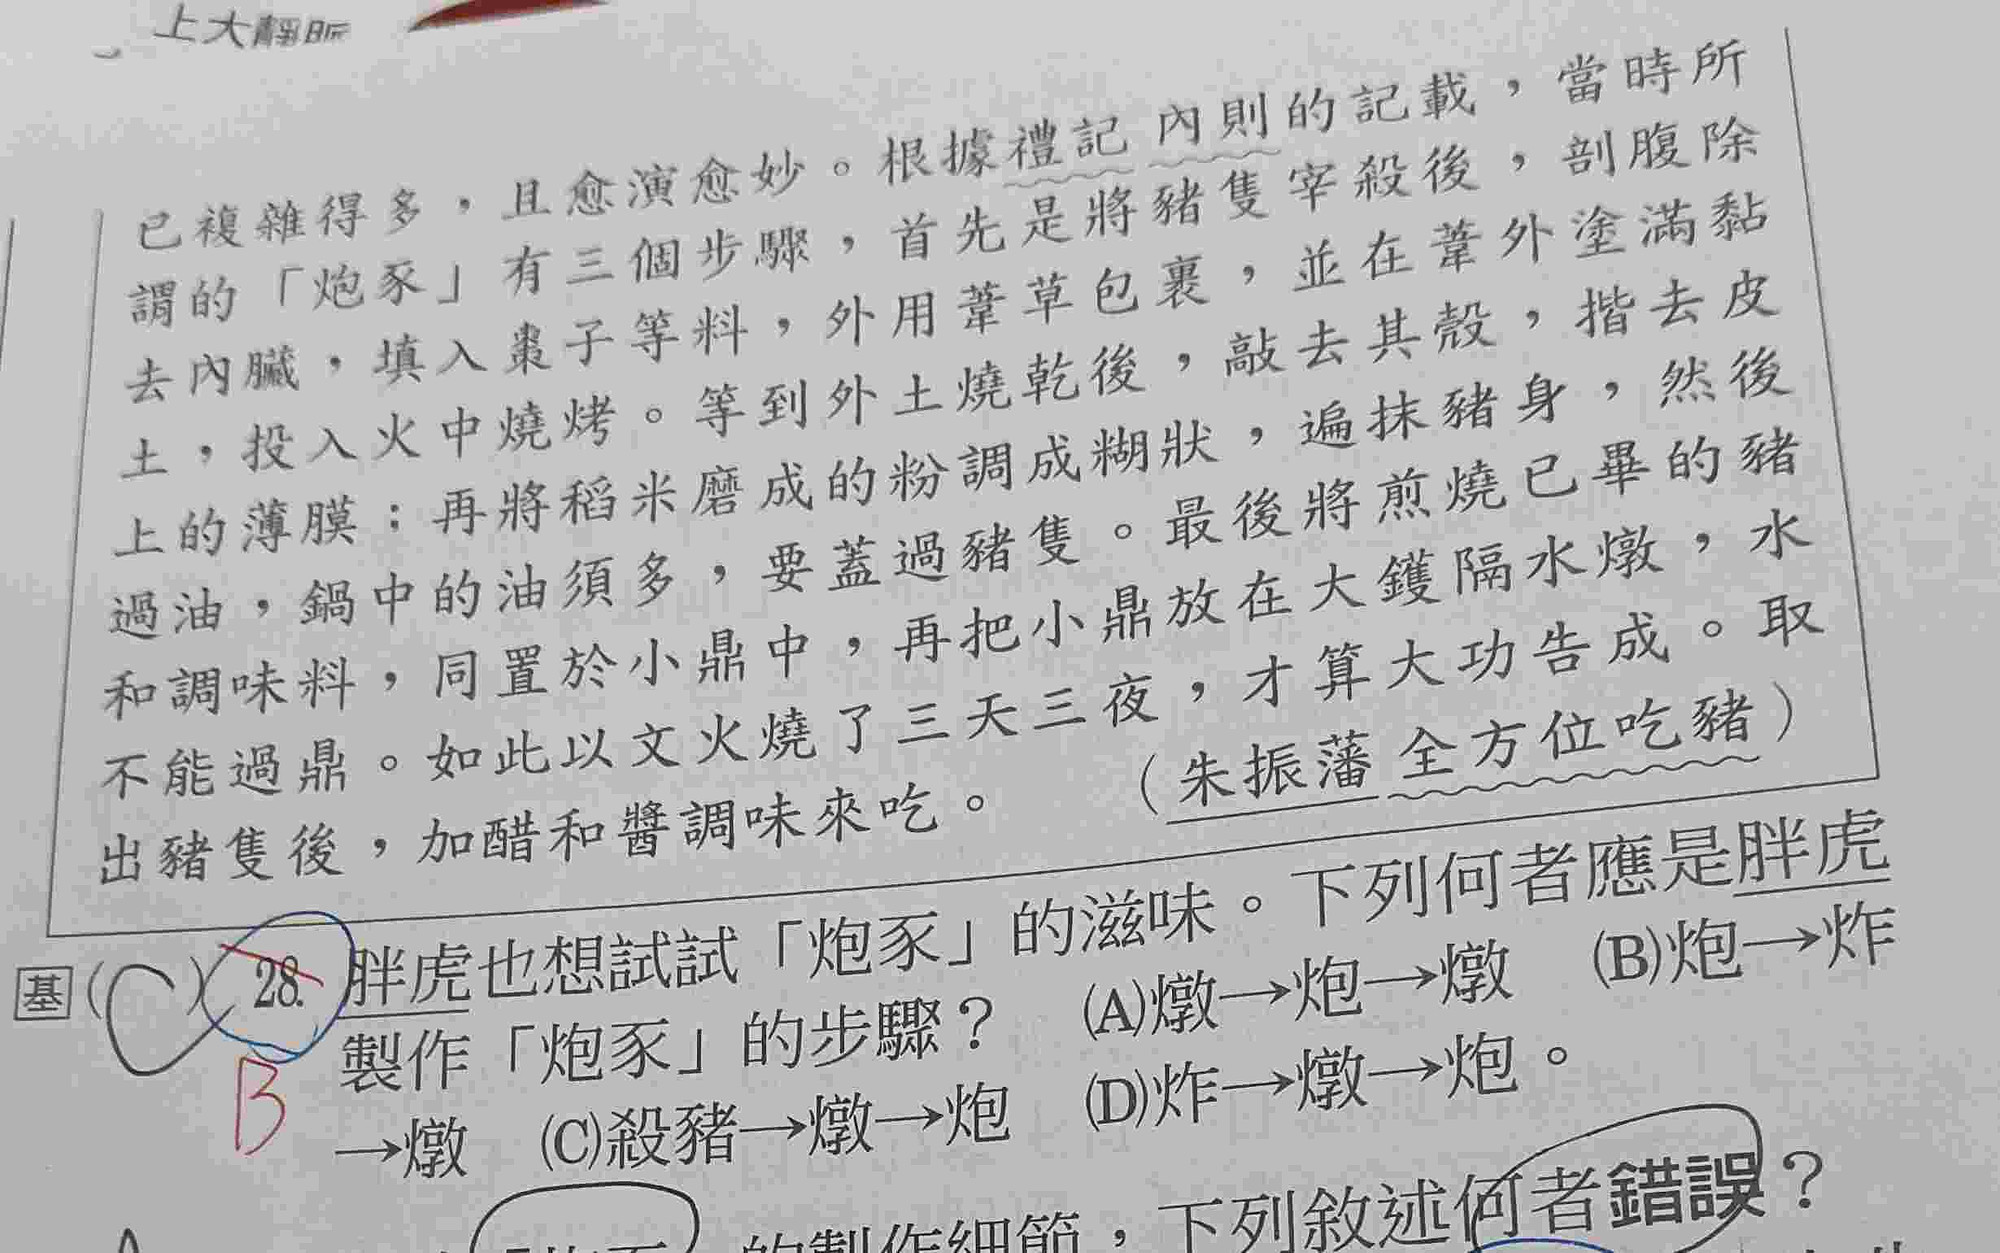 已複雜得多，且愈演愈妙。根據禮記 內則的記載，當時所
謂的「炮豕」有三個步驟，首先是將豬隻宰殺後，剖腹除
去內臟，填入棗子等料，外用葦草包裹，並在葦外塗滿黏
土，投入火中燒烤。等到外土燒乾後，敲去其殼，揩去皮
上的薄膜；再將稻米磨成的粉調成糊狀，遍抹豬身，然後
過油，鍋中的油須多，要蓋過豬隻。最後將煎燒已畢的豬
和調味料，同置於小鼎中，再把小鼎放在大鑊隔水燉，水
不能過鼎。如此以文火燒了三天三夜，才算大功告成。取
出豬隻後，加醋和醬調味來吃。（朱振藩 全方位吃豬）
基(C)28.胖虎也想試試「炮豕」的滋味。下列何者應是胖虎
製作「炮豕」的步驟？ (A)燉→炮→燉 (B)炮→炸
B
→燉 (C)殺豬→燉→炮 (D)炸→燉→炮。
的製作細節，下列敘述何者錯誤？